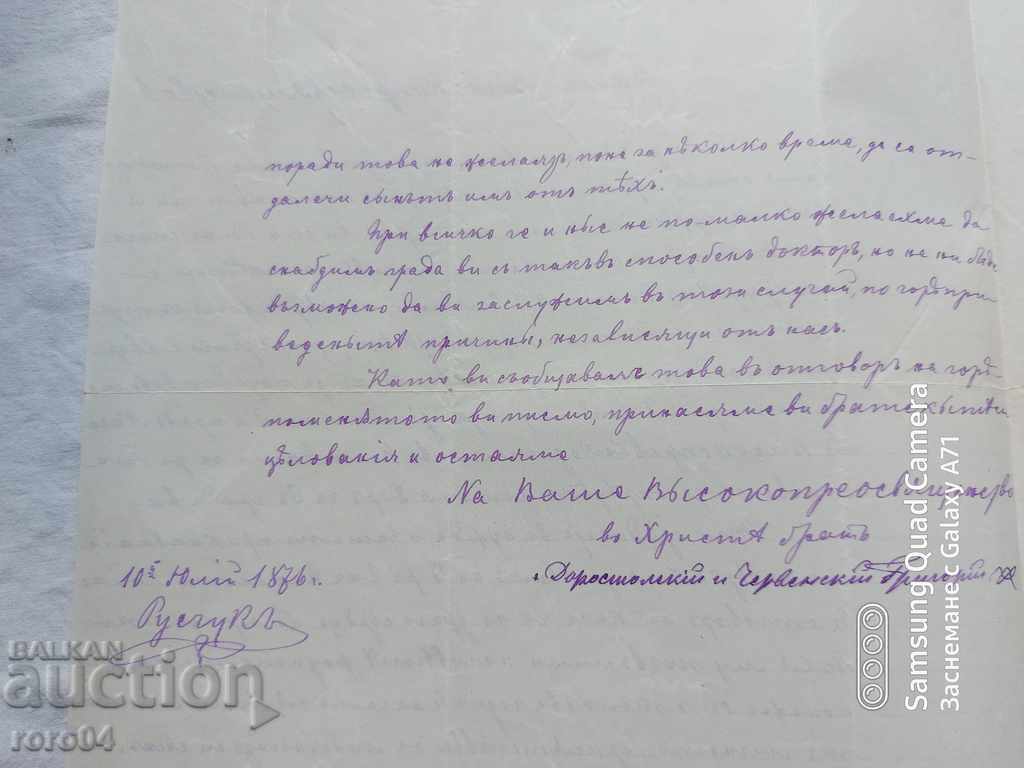 поради това не желаятъ, поне за нѣколко врѣмя, да се от-
далечи сынътъ имъ отъ тѣхъ.
При всичко че и ные не по-малко желаехме да
снабдимъ града ви съ такъвъ способенъ докторъ, но не ни бѣде
възможно да ви заслужимъ въ този случай, по горѣпри-
веденытѣ причины, независящи отъ насъ.
Като ви съобщаваме това въ отговоръ на горѣ-
поменятото ви писмо, принасяме ви братскытѣ си
цѣлования и остаяме
На Ваше Высокопреосвященство
во Христѣ братъ
10й Юлий 1876 г.
† Доростолскій и Червенскій Григорій
Русчукъ
BALKAN
auction
roro04
Samsung Quad Camera
Заснемане с Galaxy A71